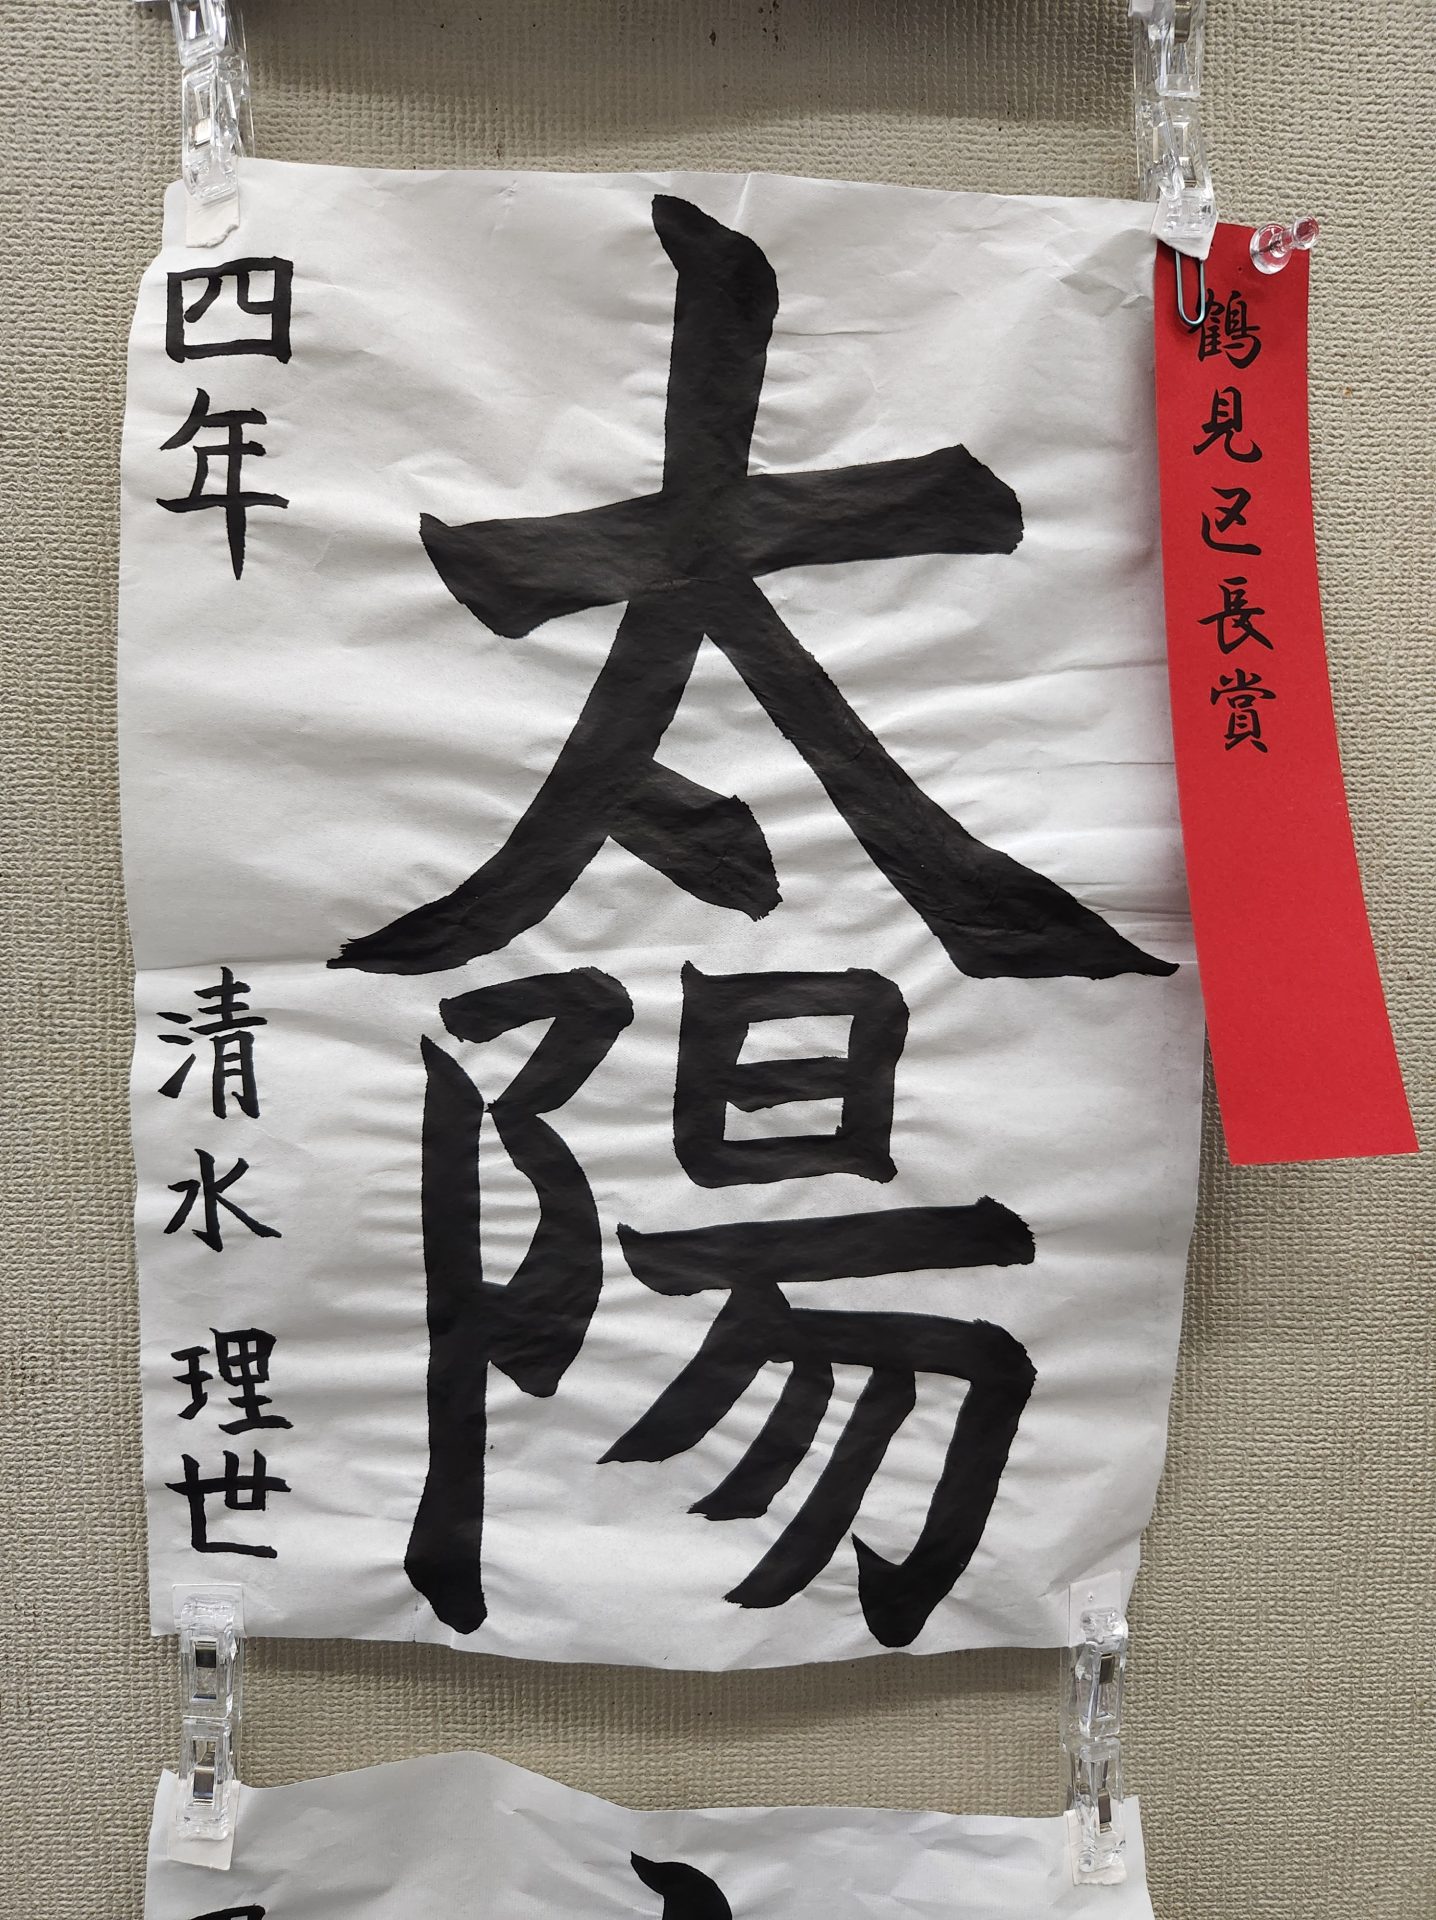 鶴見区長賞
太陽
四年
清水理世